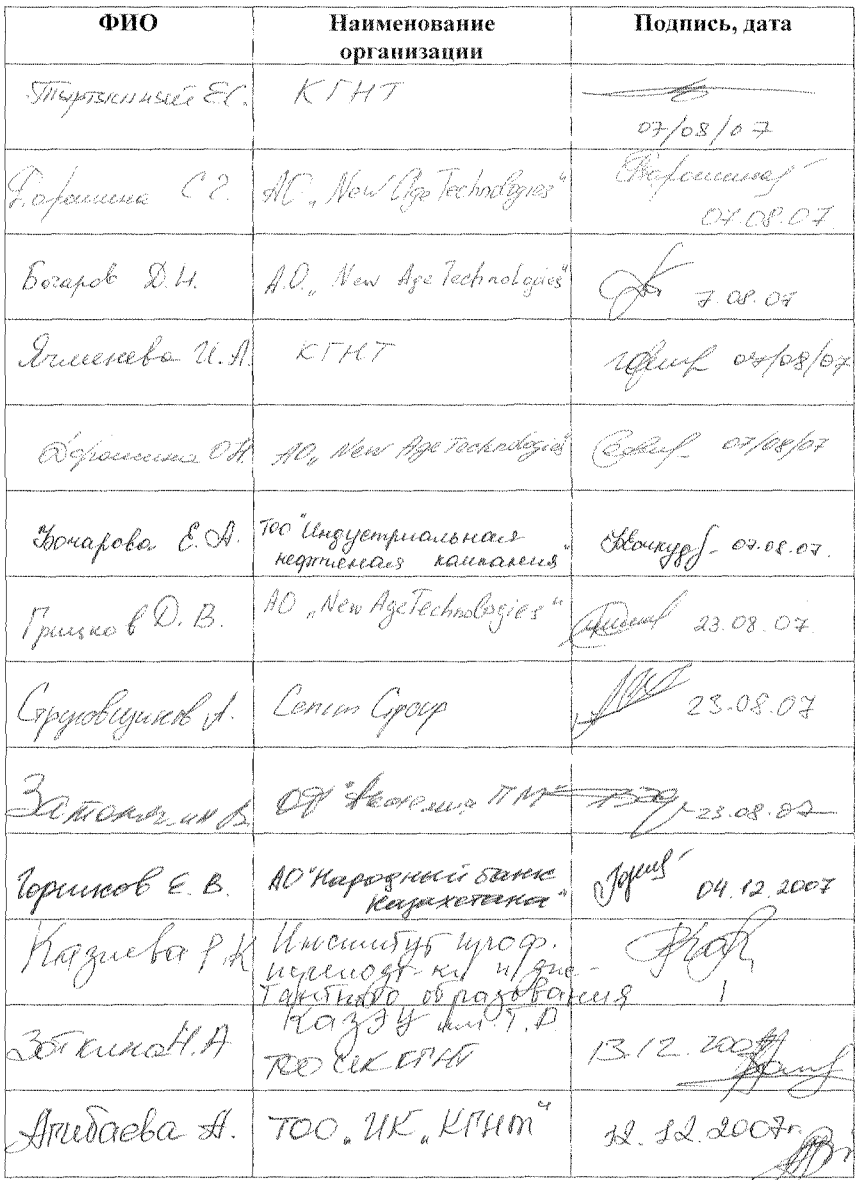 ФИО
Наименование
организации
Подпись, дата
Е.С.
КГНТ
07/08/07
С.
АО „New Age Technologies“
07.08.07
Бочаров Д.Н.
А.О. „New Age Technologies“
7.08.07
Ячменева И.А.
КГНТ
07/08/07
Дорошина О.Н.
АО „New Age Technologies“
07/08/07
Бочарова Е.А.
ТОО "Индустриальная
нефтяная компания"
07.08.07.
Грицков Д.В.
АО „New Age Technologies“
23.08.07
Струговщиков А.
Group
23.08.07
В.
ОФ "Академия ПМ"
23.08.07
Горшков Е.В.
АО "Народный банк
Казахстана"
04.12.2007
Казиева К
Институт проф.
переподг-ки и дис-
танTного образования
КазЭУ им. Т.Р
Зоткина Н.А
ТОО КГНТ
13.12.2007
Агибаева А.
ТОО „ИК „КГНТ“
12.12.2007г.